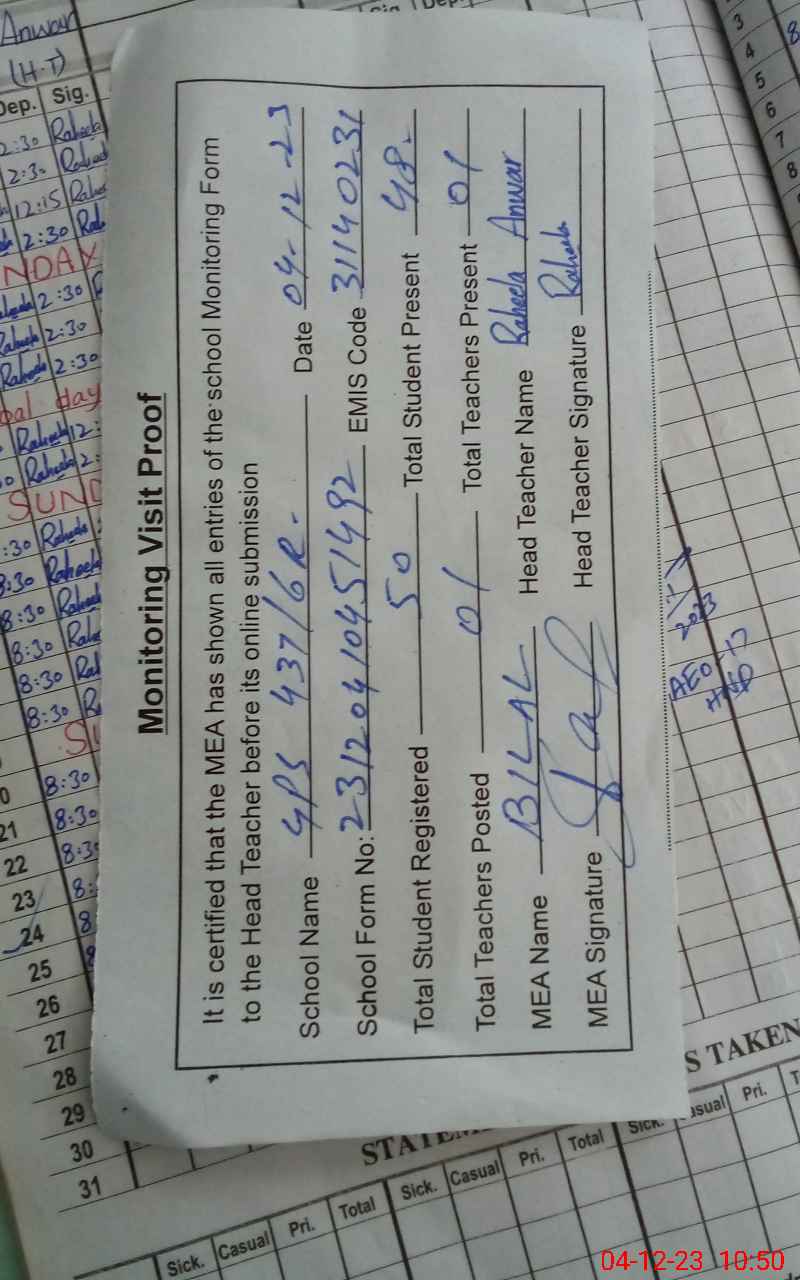 Monitoring Visit Proof
It is certified that the MEA has shown all entries of the school Monitoring Form
to the Head Teacher before its online submission
School Name GPS 437/6R. Date 04-12-23
School Form No: 23120410451492 EMIS Code 31140231
Total Student Registered 50 Total Student Present 48-
Total Teachers Posted 01 Total Teachers Present 01
MEA Name BILAL Head Teacher Name Raheela Anwar
MEA Signature Head Teacher Signature Raheela
Anwar
(H.T)
Dep. Sig.
2:30 Raheela
2:30
12:15
2:30
2:30
2:30
Raheela 2:30
day
Raheela 12:
Raheela 2:
:30 Raheela
8:30 Raheela
8:30
8:30
8:30
8:30
8:30
21 8:30
22 8:3
23 8:
24 8
25 8
26
27
28
29
30
31
2023
AEO-17
HNP
3
4
5
6
7
8
S TAKEN
Sick. Casual Pri. Total Sick. Casual Pri. Total Sick. Pri.
04-12-23 10:50